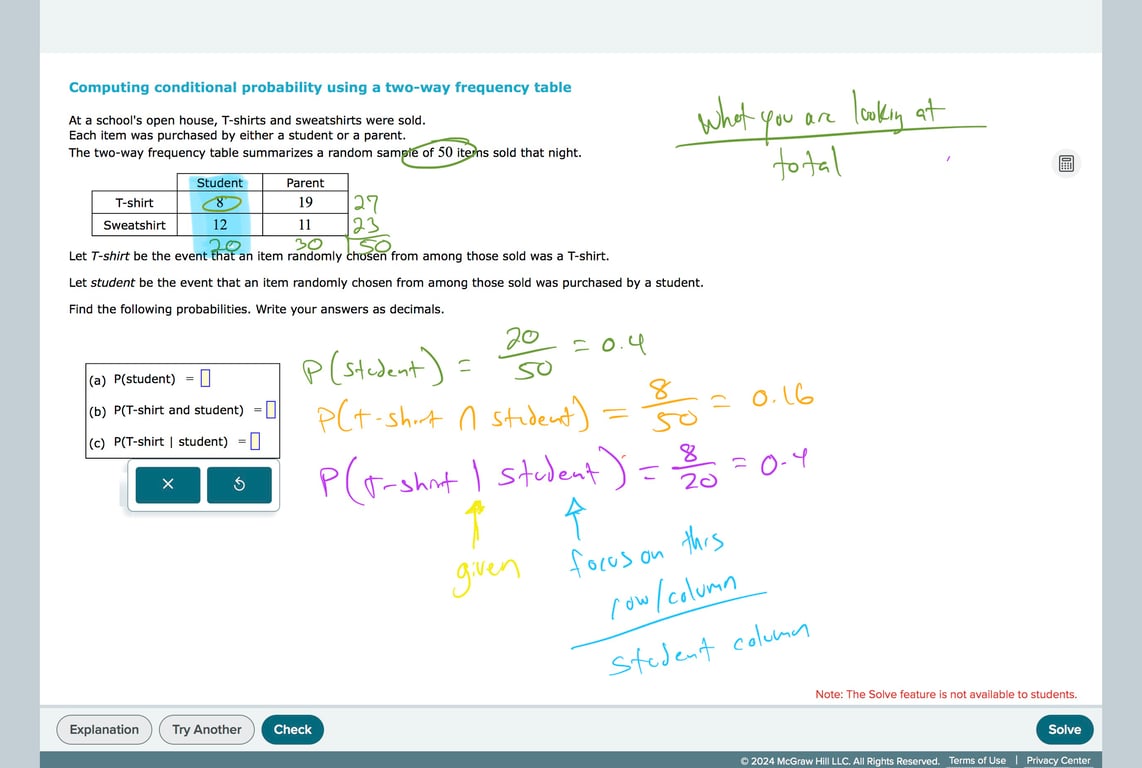 Computing conditional probability using a two-way frequency table
What you are looking at
total
At a school's open house, T-shirts and sweatshirts were sold.
Each item was purchased by either a student or a parent.
The two-way frequency table summarizes a random sample of 50 items sold that night.
Student Parent
T-shirt 8 19 27
Sweatshirt 12 11 23
20 30 50
Let T-shirt be the event that an item randomly chosen from among those sold was a T-shirt.
Let student be the event that an item randomly chosen from among those sold was purchased by a student.
Find the following probabilities. Write your answers as decimals.
(a) P(student) =
(b) P(T-shirt and student) =
(c) P(T-shirt | student) =
P(student) = 20/50 = 0.4
P(T-shirt ∩ student) = 8/50 = 0.16
P(T-shirt | student) = 8/20 = 0.4
given
focus on this
row/column
student column
Note: The Solve feature is not available to students.
Explanation Try Another Check Solve
© 2024 McGraw Hill LLC. All Rights Reserved. Terms of Use | Privacy Center